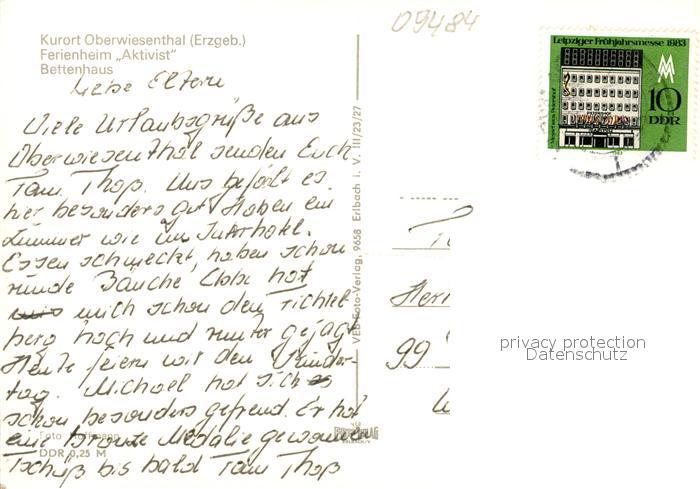 Kurort Oberwiesenthal (Erzgeb.)
Ferienheim „Aktivist"
Bettenhaus
Liebe Eltern
Viele Urlaubsgrüße aus
Oberwiesenthal senden Euch
Fam. Thoß. Uns gefällt es
hier besonders gut. Haben ein
Zimmer wie im Interhotel.
Essen schmeckt, haben schon
runde Bäuche. hat
mich schon den Fichtel
berg hoch und runter gejagt
Heute feiern wir den Kinder-
tag. Michael hat sich
schon besonders gefreud. Er hat
eine bronze Medalie gewonnen
Tschüß bis bald Fam Thoß
Foto: Hoffmann
DDR 0,25 M
VEB Foto-Verlag, 9658 Erlbach i. V. III/23/27
09484
Leipziger Frühjahrsmesse 1983
10
DDR
Messehaus Petershof
1983
Her
99
privacy protection
Datenschutz